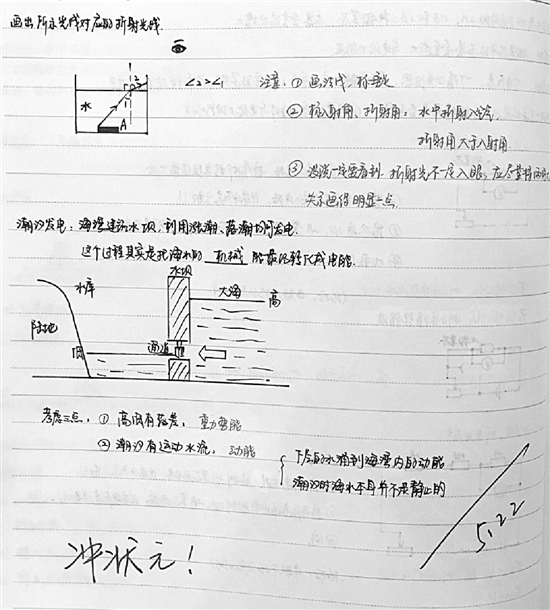 画出所示光线对应的折射光线.
水
A
∠2>∠1
注意: ① 画法线, 标箭头
② 标入射角、折射角: 水中折射入空气,
折射角大于入射角.
③ 没说一定要看到, 折射光不一定入眼, 应尽量将两角
关系画得明显一点.
潮汐发电: 海湾建筑水坝, 利用涨潮、落潮均可发电
这个过程其实是把海水的 机械 能最终转化成电能.
水坝
水库
大海
高
陆地
低
通道
考虑二点: ① 高低有落差, 重力势能
② 潮汐有运动水流, 动能
下层的水涌到海湾内的动能
潮汐时海水本身并不是静止的
5.22
冲状元!